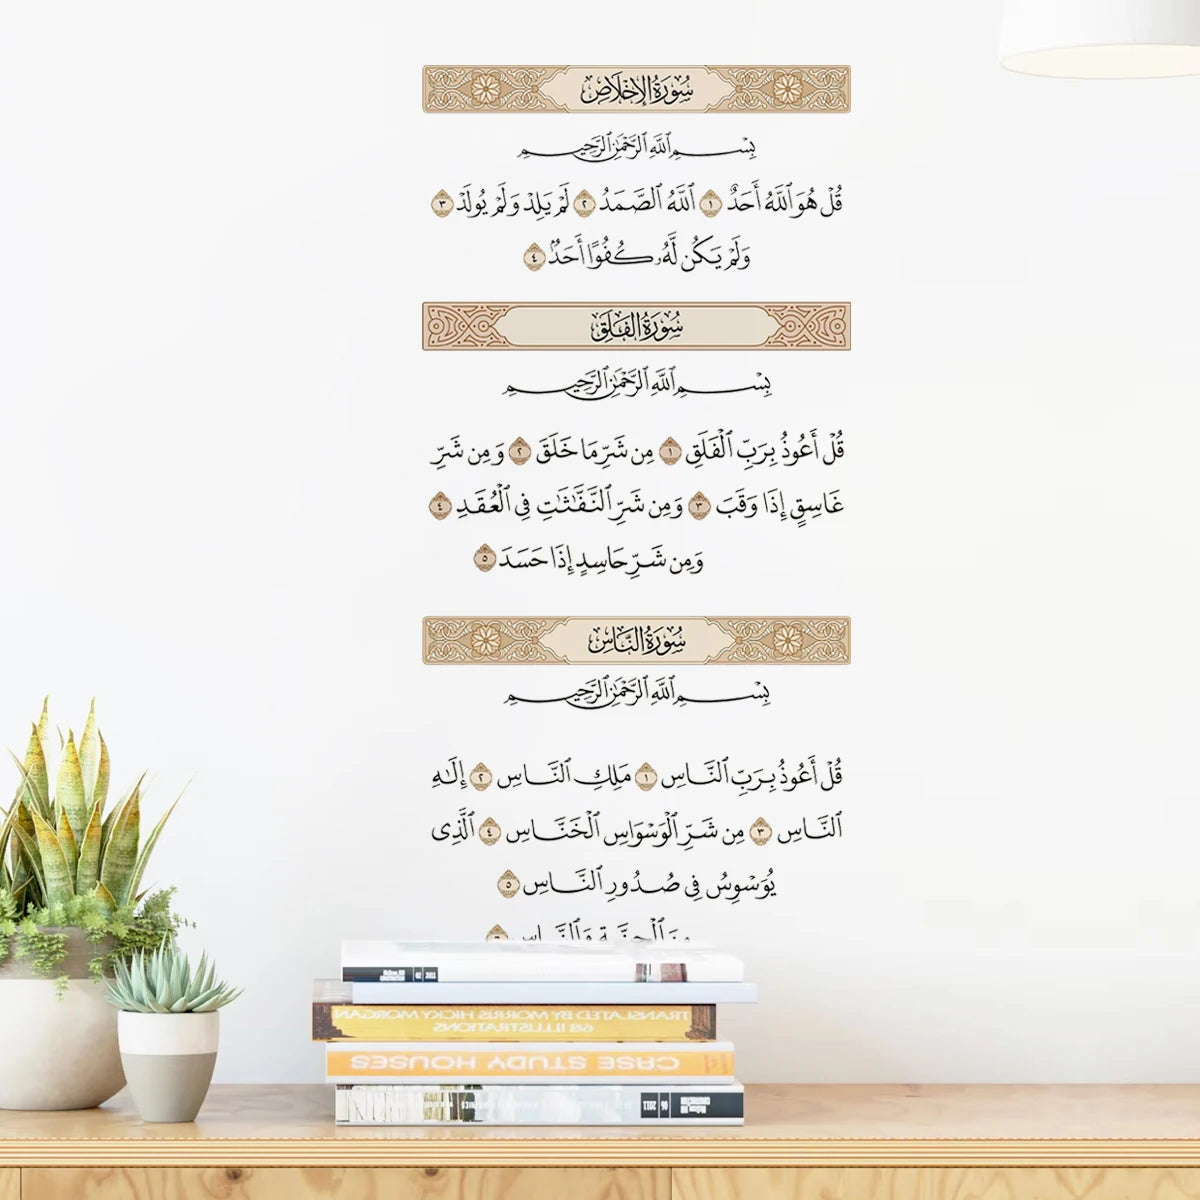 سُورَةُ الإِخْلَاصِ
بِسْمِ ٱللَّهِ ٱلرَّحْمَٰنِ ٱلرَّحِيمِ
قُلْ هُوَ ٱللَّهُ أَحَدٌ ١ ٱللَّهُ ٱلصَّمَدُ ٢ لَمْ يَلِدْ وَلَمْ يُولَدْ ٣
وَلَمْ يَكُن لَّهُۥ كُفُوًا أَحَدٌۢ ٤
سُورَةُ الفَلَقِ
بِسْمِ ٱللَّهِ ٱلرَّحْمَٰنِ ٱلرَّحِيمِ
قُلْ أَعُوذُ بِرَبِّ ٱلْفَلَقِ ١ مِن شَرِّ مَا خَلَقَ ٢ وَمِن شَرِّ
غَاسِقٍ إِذَا وَقَبَ ٣ وَمِن شَرِّ ٱلنَّفَّٰثَٰتِ فِى ٱلْعُقَدِ ٤
وَمِن شَرِّ حَاسِدٍ إِذَا حَسَدَ ٥
سُورَةُ النَّاسِ
بِسْمِ ٱللَّهِ ٱلرَّحْمَٰنِ ٱلرَّحِيمِ
قُلْ أَعُوذُ بِرَبِّ ٱلنَّاسِ ١ مَلِكِ ٱلنَّاسِ ٢ إِلَٰهِ
ٱلنَّاسِ ٣ مِن شَرِّ ٱلْوَسْوَاسِ ٱلْخَنَّاسِ ٤ ٱلَّذِى
يُوَسْوِسُ فِى صُدُورِ ٱلنَّاسِ ٥
مِنَ ٱلْجِنَّةِ وَٱلنَّاسِ ٦
TRANSLATED BY MORRIS HICKY MORGAN
68 ILLUSTRATIONS
CASE STUDY HOUSES